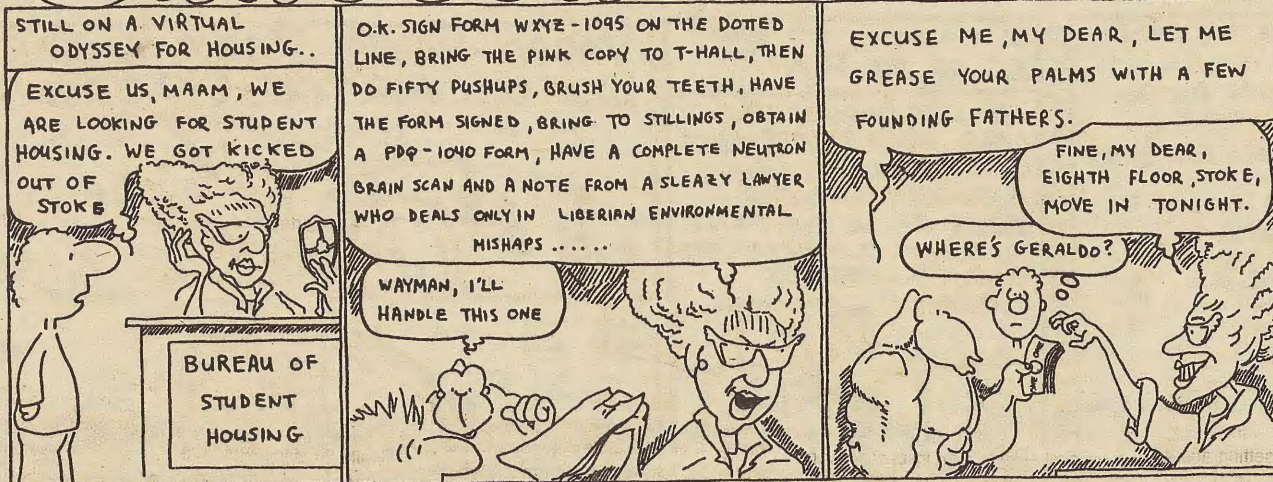 STILL ON A VIRTUAL
ODYSSEY FOR HOUSING..
EXCUSE US, MAAM, WE
ARE LOOKING FOR STUDENT
HOUSING. WE GOT KICKED
OUT OF
STOKE
BUREAU OF
STUDENT
HOUSING
O.K. SIGN FORM WXYZ-1095 ON THE DOTTED
LINE, BRING THE PINK COPY TO T-HALL, THEN
DO FIFTY PUSHUPS, BRUSH YOUR TEETH, HAVE
THE FORM SIGNED, BRING TO STILLINGS, OBTAIN
A PDQ-1040 FORM, HAVE A COMPLETE NEUTRON
BRAIN SCAN AND A NOTE FROM A SLEAZY LAWYER
WHO DEALS ONLY IN LIBERIAN ENVIRONMENTAL
MISHAPS ......
WAYMAN, I'LL
HANDLE THIS ONE
EXCUSE ME, MY DEAR, LET ME
GREASE YOUR PALMS WITH A FEW
FOUNDING FATHERS.
FINE, MY DEAR,
EIGHTH FLOOR, STOKE,
MOVE IN TONIGHT.
WHERE'S GERALDO?